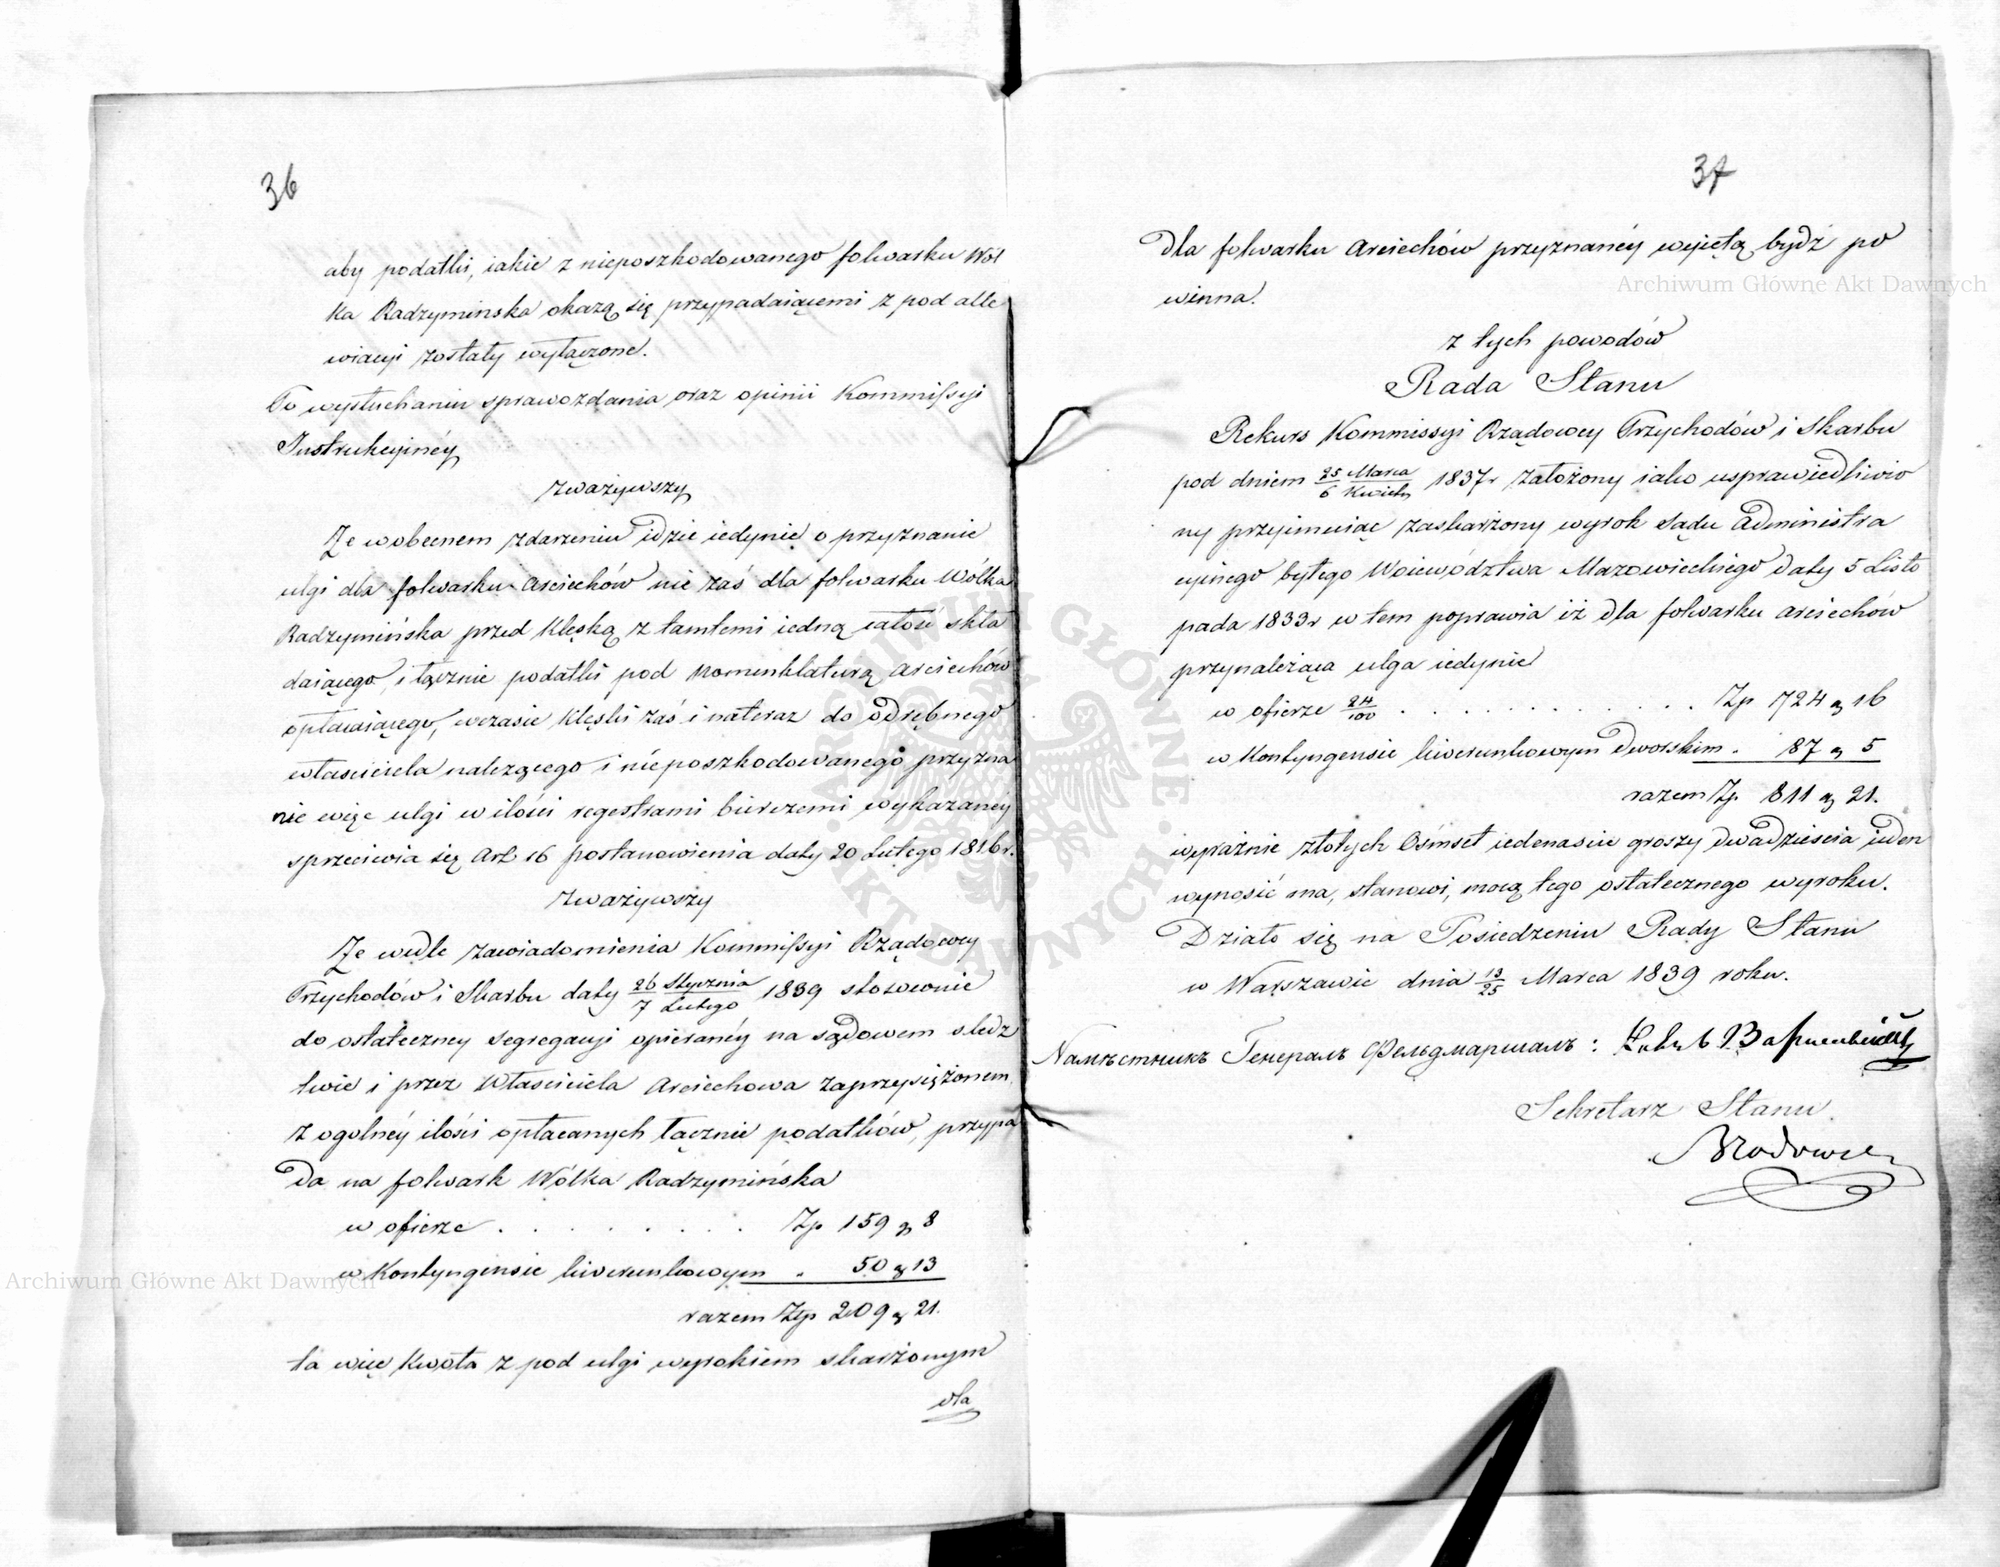 36
aby podatki, iakie z nieposzkodowanego folwarku Wól
ka Radzyminska okażą się przypadaiącemi z pod alle
wiacyi zostały wyłączone.
Po wysłuchaniu sprawozdania oraz opinii Kommissyi
Instrukcyinéy
Zważywszy
Że w obecnem zdarzeniu idzie iedynie o przyznanie
ulgi dla folwarku Arciechów nie zaś dla folwarku Wólka
Radzymińska przed klęską z tamtemi iedną całość skła
daiącego, i łącznie podatki pod nomenklaturą Arciechów
opłacaiącego, w czasie klęski zaś i nateraz do odrębnego
właściciela należącego i nieposzkodowanego przyzna
nie więc ulgi w ilości regestrami bierczemi wykazanéy
sprzeciwia się Art 16 postanowienia daty 20 Lutego 1816 r.
Zważywszy
Że wedle zawiadomienia Kommissyi Rządowey
Przychodów i Skarbu daty 26 Stycznia / 7 Lutego 1839 stosownie
do ostateczney segregacyi opieranéy na sądowem śledz
twie i przez Właściciela Arciechowa zaprzysiężonem,
z ogolnéy ilości opłacanych łącznie podatków, przypa
da na folwark Wólka Radzymińska
w ofierze . . . . . . . . Zp 159 g 8
w Kontyngensie liwerunkowym „ 50 g 13
razem Złp 209 g 21.
ta więc kwota z pod ulgi wyrokiem skarżonym
dla
37
dla folwarku Arciechów przyznanéy wyiętą bydź po
winna.
z tych powodów
Rada Stanu
Rekurs Kommissyi Rządowey Przychodów i Skarbu
pod dniem 25 Marca / 6 Kwietn 1837 r założony iako usprawiedliwio
ny przyimuiąc zaskarżony wyrok Sądu Administra
cyinego byłego Woiewództwa Mazowieckiego daty 5 Listo
pada 1833 r w tem poprawia iż dla folwarku Arciechów
przynależąca ulga iedynie
w ofierze 24/100 . . . . . . . . . . . . Zp 724 g 16
w Kontyngensie liwerunkowym dworskim . 87 g 5
razem Zp. 811 g 21.
wyraźnie złotych Ośmset iedenaście groszy dwadzieścia ieden
wynosić ma, stanowi, mocą tego ostatecznego wyroku.
Działo się na Posiedzeniu Rady Stanu
w Warszawie dnia 13/25 Marca 1839 roku.
Намѣстникъ Генералъ Фельдмаршалъ:
Sekretarz Stanu.
Archiwum Główne Akt Dawnych
Archiwum Główne Akt Dawnych
ARCHIWUM GŁÓWNE AKT DAWNYCH